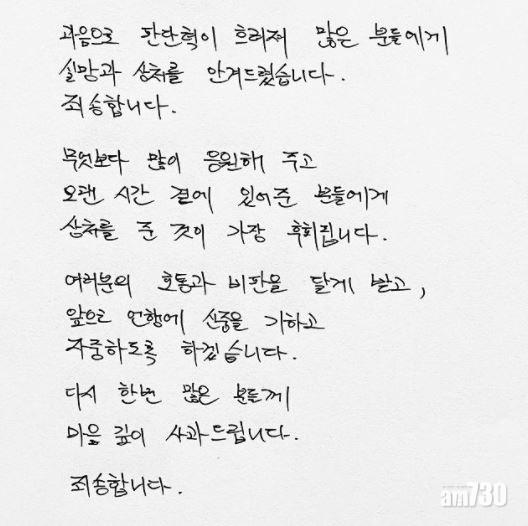 과음으로 판단력이 흐려져 많은 분들에게
실망과 상처를 안겨드렸습니다.
죄송합니다.
무엇보다 많이 응원해 주고
오랜 시간 곁에 있어준 분들에게
상처를 준 것이 가장 후회됩니다.
여러분의 호통과 비판을 달게 받고,
앞으로 언행에 신중을 기하고
자중하도록 하겠습니다.
다시 한번 많은 분들께
마음 깊이 사과드립니다.
죄송합니다.
am730